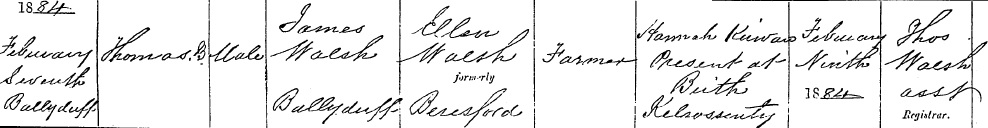 1884
February
Seventh
Ballyduff
Thomas. B
Male
James
Walsh
Ballyduff
Ellen
Walsh
formerly
Beresford
Farmer
Hannah Kirwan
Present at
Birth
Kilrossenty
February
Ninth
1884
Thos
Walsh
asst
Registrar.